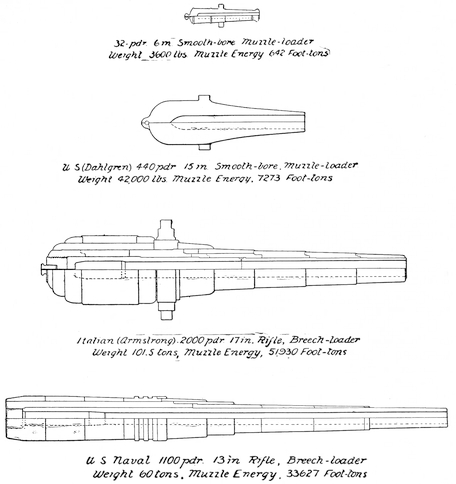 32-pdr. 6in Smooth-bore Muzzle-loader
Weight 3600 lbs Muzzle Energy 642 Foot-tons
U S (Dahlgren) 440pdr 15in Smooth-bore, Muzzle-loader
Weight 42,000 lbs Muzzle Energy, 7273 Foot-tons
Italian (Armstrong). 2000pdr 17in. Rifle, Breech-loader
Weight 101.5 tons, Muzzle Energy, 51,930 Foot-tons
U S Naval 1100pdr. 13in Rifle, Breech-loader
Weight 60tons, Muzzle Energy, 33627 Foot-tons